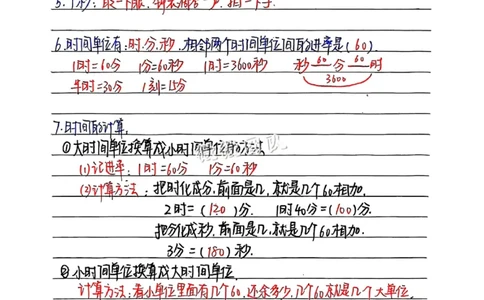 6.时间单位有:时.分.秒,相邻两个时间单位间的进率是(60).
1时=60分 1分=60秒 1时=3600秒 秒 60 分 60 时
3600
半时=30分 1刻=15分
7.时间的计算.
①大时间单位换算成小时间单位的方法
(1)记进率:1时=60分 1分=60秒
(2)计算方法:把时化成分.前面是几,就是几个60相加.
2时=(120)分. 1时40分=(100)分.
把分化成秒.前面是几,就是几个60相加.
3分=(180)秒.
②小时间单位换算成大时间单位.
计算方法:看小单位里面有几个60,还余多少,几个60就是几个大单位.